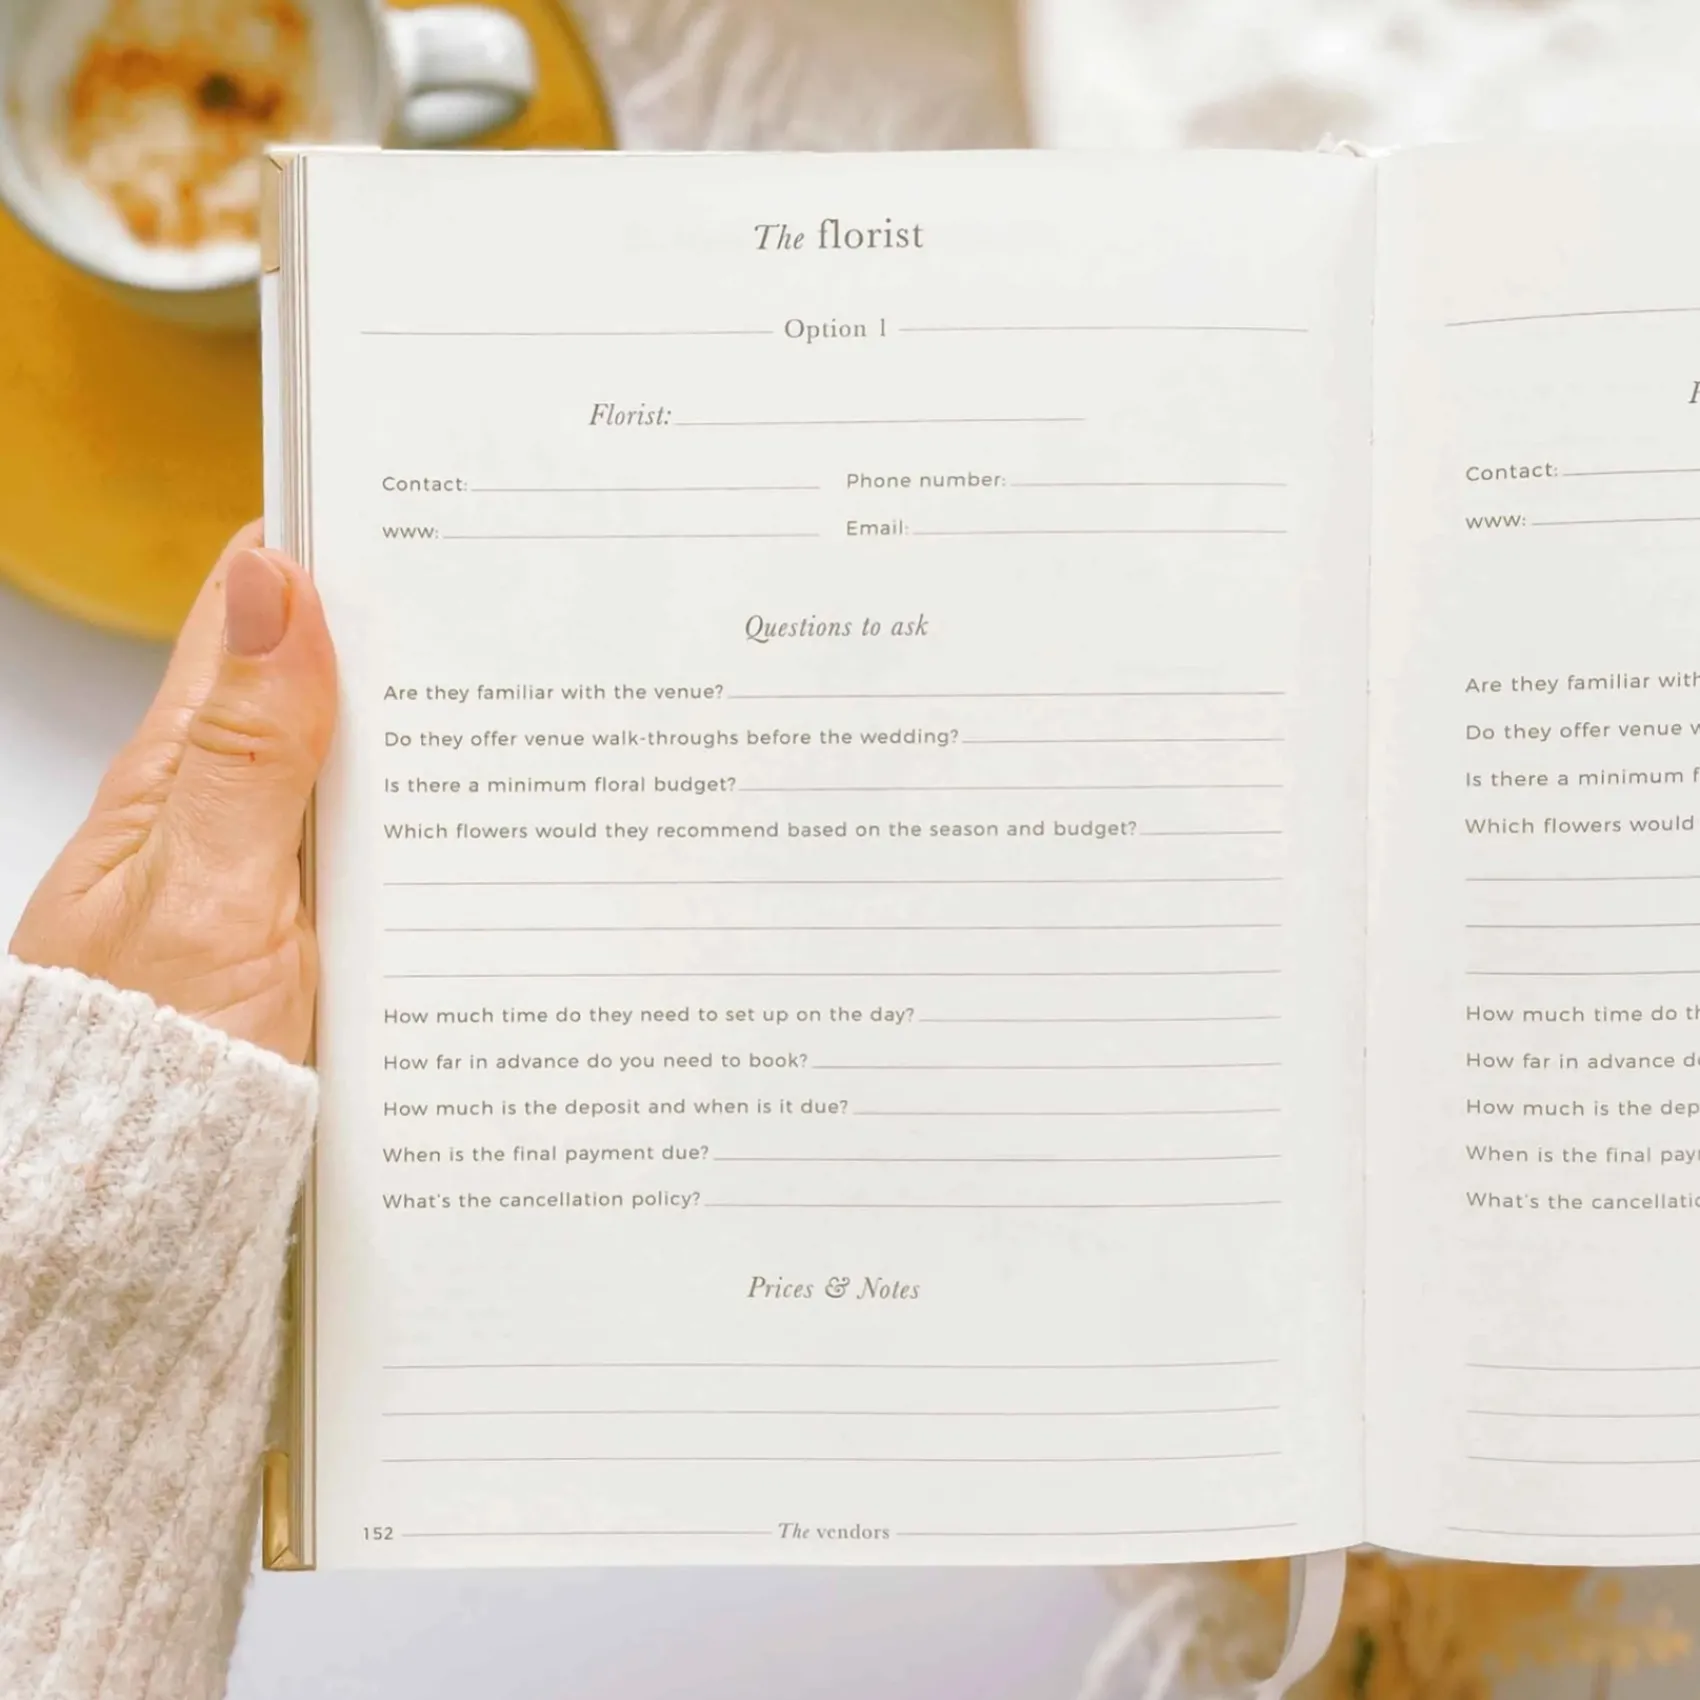 The florist
Option 1
Florist:
Contact: Phone number:
www: Email:
Questions to ask
Are they familiar with the venue?
Do they offer venue walk-throughs before the wedding?
Is there a minimum floral budget?
Which flowers would they recommend based on the season and budget?
How much time do they need to set up on the day?
How far in advance do you need to book?
How much is the deposit and when is it due?
When is the final payment due?
What's the cancellation policy?
Prices & Notes
152 The vendors
Contact:
www:
Are they familiar with
Do they offer venue
Is there a minimum
Which flowers would
How much time do
How far in advance
How much is the
When is the final
What's the